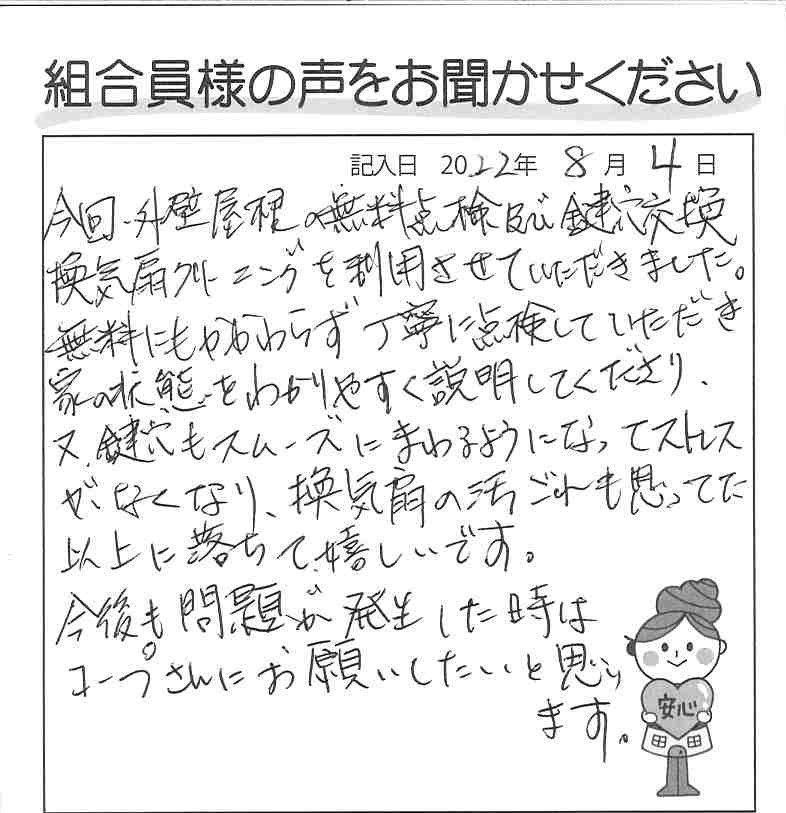 組合員様の声をお聞かせください
記入日 2022年 8月 4日
今回、外壁屋根の無料点検及び鍵穴交換
換気扇クリーニングを利用させていただきました。
無料にもかかわらず丁寧に点検していただき
家の状態をわかりやすく説明してくださり、
又、鍵穴もスムーズにまわるようになってストレス
がなくなり、換気扇の汚ごれも思ってた
以上に落ちて嬉しいです。
今後も問題が発生した時は
コープさんにお願いしたいと思い
ます。
安心